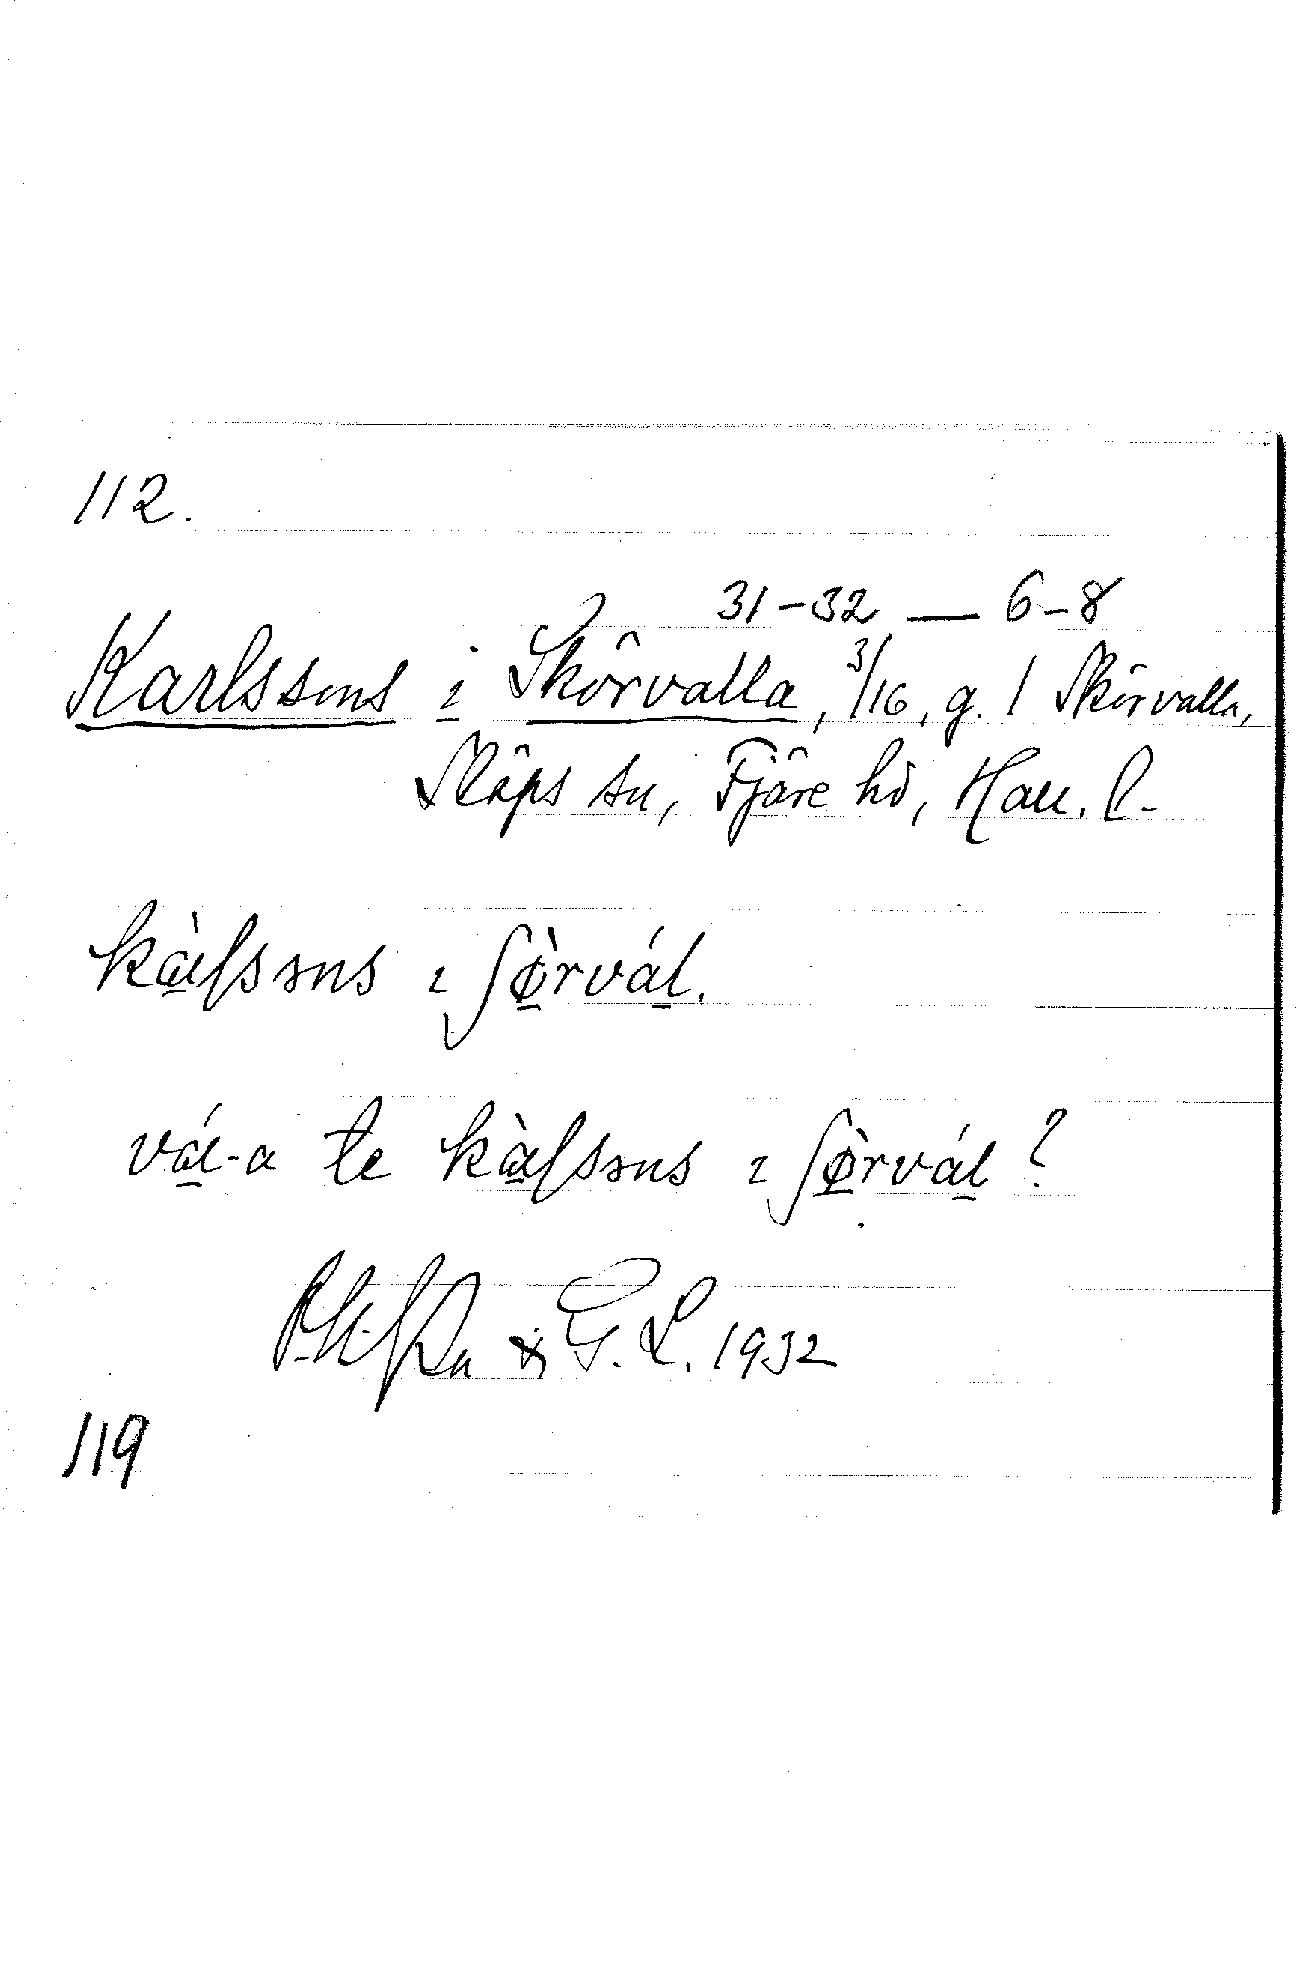 112.
31-32 — 6-8
Karlssons i Skörvalla, 3/16, g. 1 Skörvalla,
Släps sn, Fjäre hd, Hall. l.
kàlsəns ɩ ʃø̀rvál.
vál-a te kàlsəns ɩ ʃø̀rvál?
G. L. 1932
119